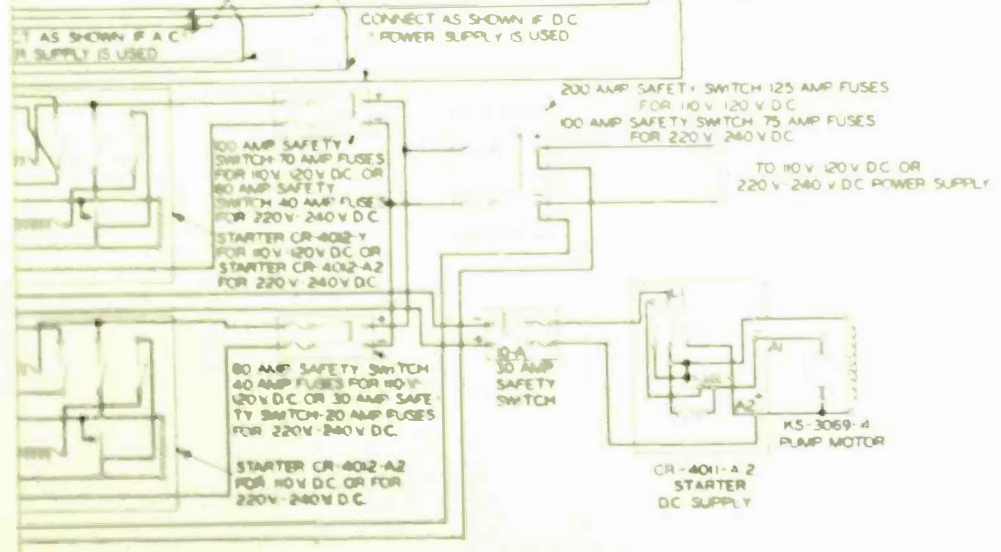 CONNECT AS SHOWN IF D.C.
POWER SUPPLY IS USED
T AS SHOWN IF A.C.
R SUPPLY IS USED
200 AMP SAFETY SWITCH 125 AMP FUSES
FOR 110 V 120 V D.C.
100 AMP SAFETY SWITCH 75 AMP FUSES
FOR 220 V 240 V D.C.
TO 110 V 120 V D.C. OR
220 V-240 V D.C. POWER SUPPLY
100 AMP SAFETY
SWITCH-70 AMP FUSES
FOR 110 V. 120 V D.C. OR
60 AMP SAFETY
SWITCH 40 AMP FUSES
FOR 220 V-240 V D.C.
STARTER CR-4012-Y
FOR 110 V-120 V D.C. OR
STARTER CR-4012-A2
FOR 220 V-240 V D.C.
10-A
30 AMP
SAFETY
SWITCH
60 AMP SAFETY SWITCH
40 AMP FUSES FOR 110 V-
120 V D.C. OR 30 AMP SAFE-
TY SWITCH-20 AMP FUSES
FOR 220 V-240 V D.C.
STARTER CR-4012-A2
FOR 110 V D.C. OR FOR
220 V-240 V D.C.
A1
A2
KS-3069-4
PUMP MOTOR
CR-4011-A2
STARTER
DC SUPPLY